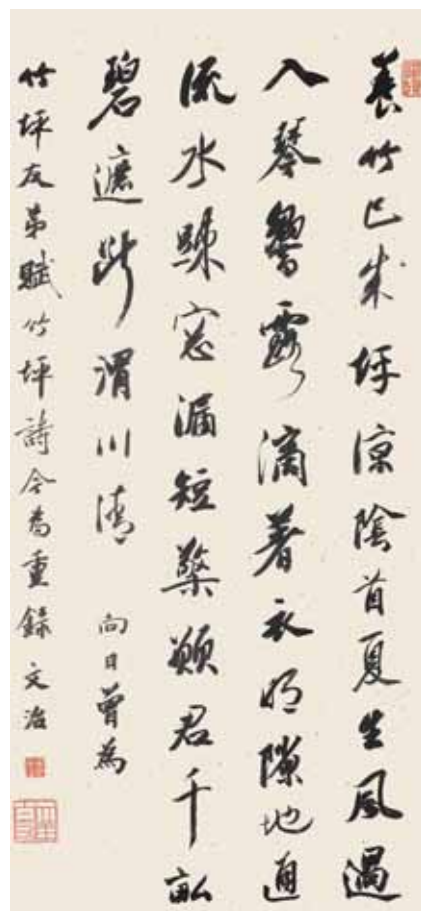 養竹已成坪涼陰首夏生風過
入琴響露滴著衣明隙地通
流水疎窓漏短檠願君千畝
碧遮斷渭川清 向日曾為
竹坪友弟賦竹坪詩今為重錄 文治